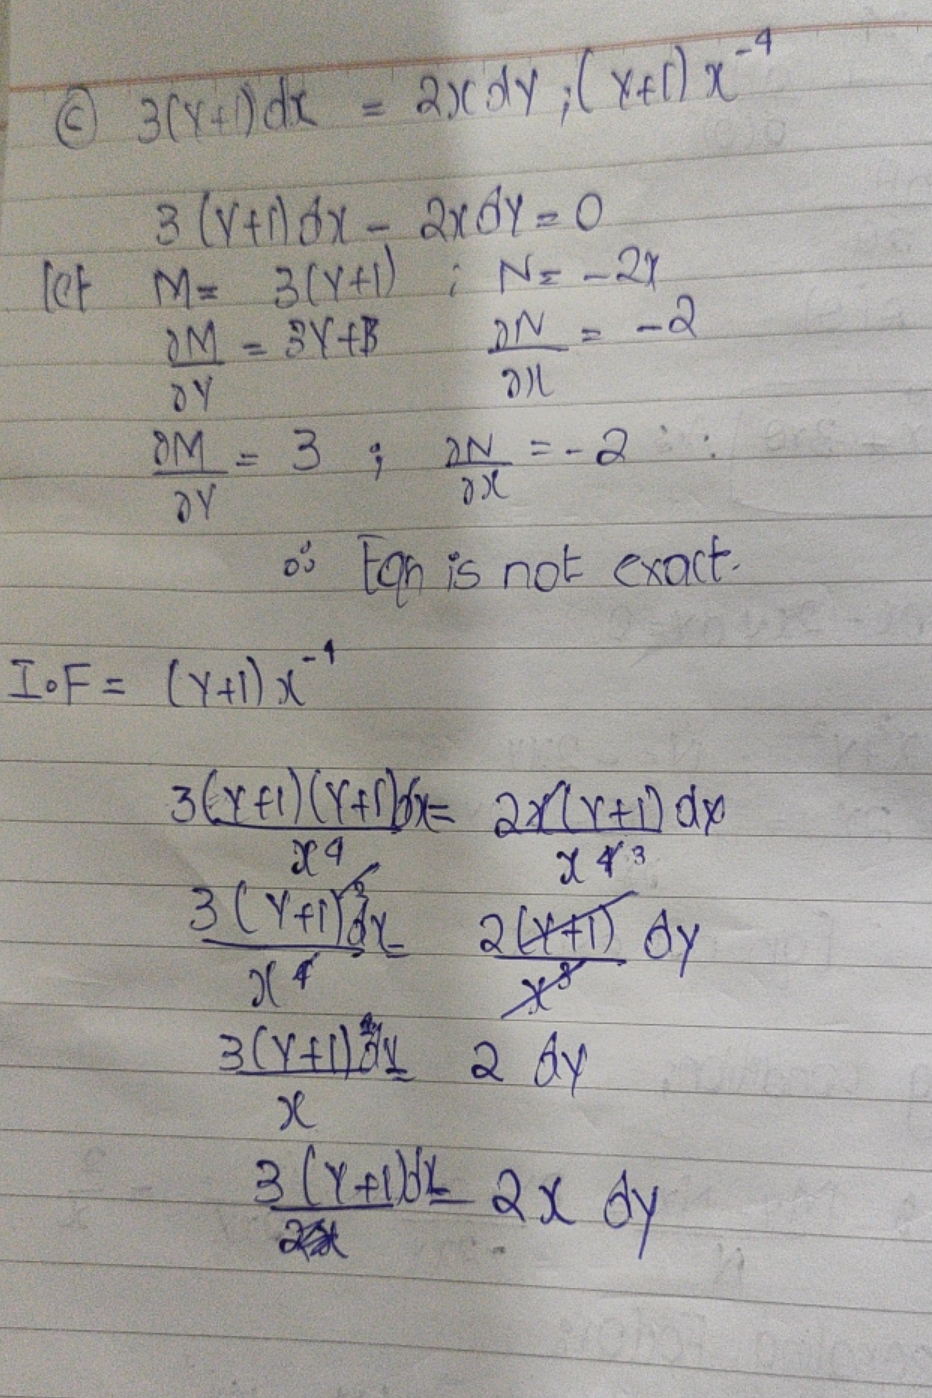 © 3(y+1)dx = 2x dy ; (y+1) x⁻⁴
3(y+1)dx - 2x dy = 0
let M = 3(y+1) ; N = -2x
∂M/∂y = 3y+3 ∂N/∂x = -2
∂M/∂y = 3 ; ∂N/∂x = -2
∴ Eqn is not exact.
I.F = (y+1) x⁻⁴
3(y+1)(y+1)dx/x⁴ = 2x(y+1)/x⁴ ³ dy
3(y+1)²dx/x⁴ = 2(y+1)/x³ dy
3(y+1)²dx/x = 2 dy
3(y+1)dx = 2x dy